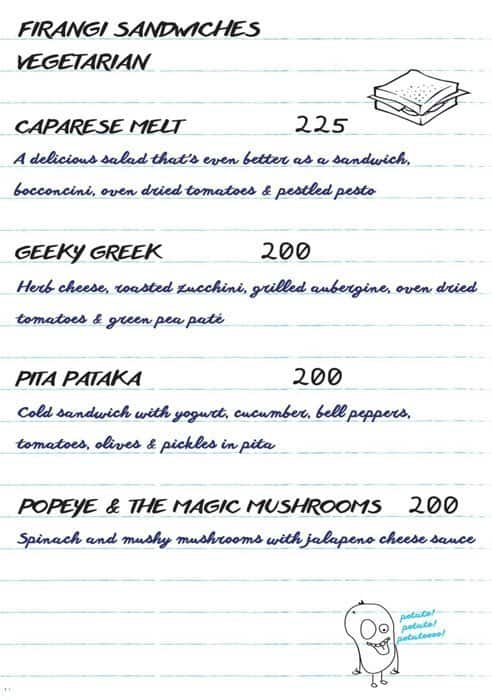 FIRANGI SANDWICHES
VEGETARIAN
CAPARESE MELT 225
A delicious salad that's even better as a sandwich,
bocconcini, oven dried tomatoes & pestled pesto
GEEKY GREEK 200
Herb cheese, roasted zucchini, grilled aubergine, oven dried
tomatoes & green pea paté
PITA PATAKA 200
Cold sandwich with yogurt, cucumber, bell peppers,
tomatoes, olives & pickles in pita
POPEYE & THE MAGIC MUSHROOMS 200
Spinach and mushy mushrooms with jalapeno cheese sauce
potato!
potato!
potatoooo!